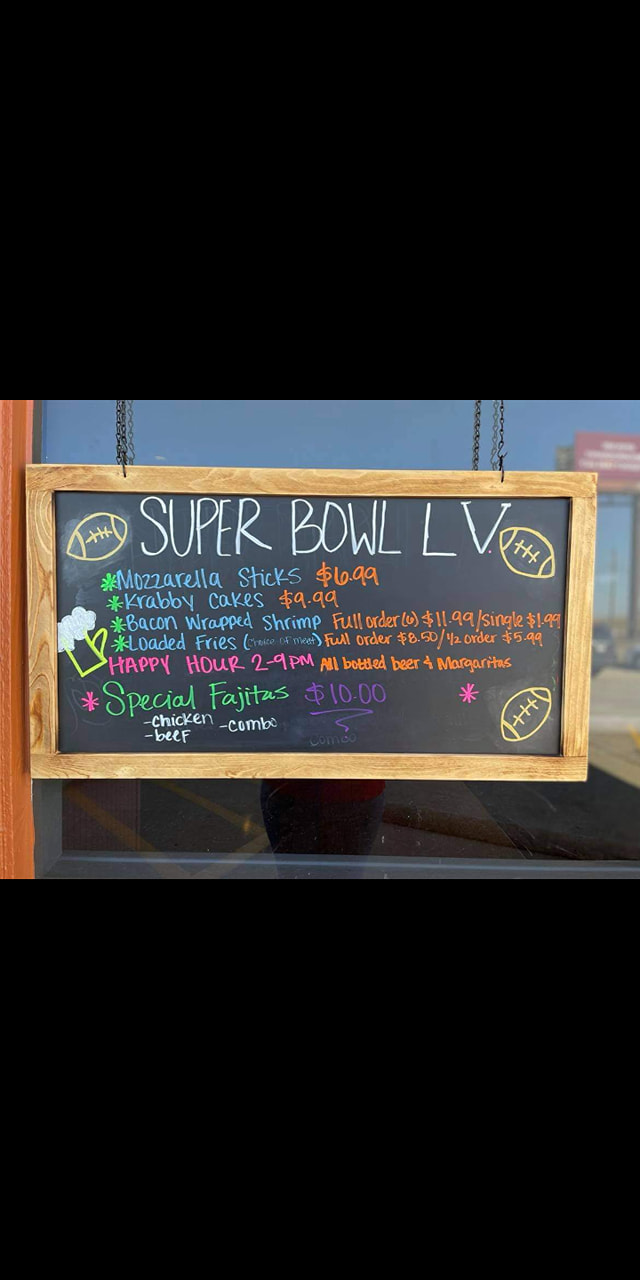 SUPER BOWL LV.
*Mozzarella Sticks $6.99
*Krabby Cakes $9.99
*Bacon Wrapped Shrimp Full order(6) $11.99/single $1.99
*Loaded Fries (choice of meat) Full order $8.50/½ order $5.99
HAPPY HOUR 2-9PM All bottled beer & Margaritas
*Special Fajitas $10.00 *
-chicken -combo
-beef
combo